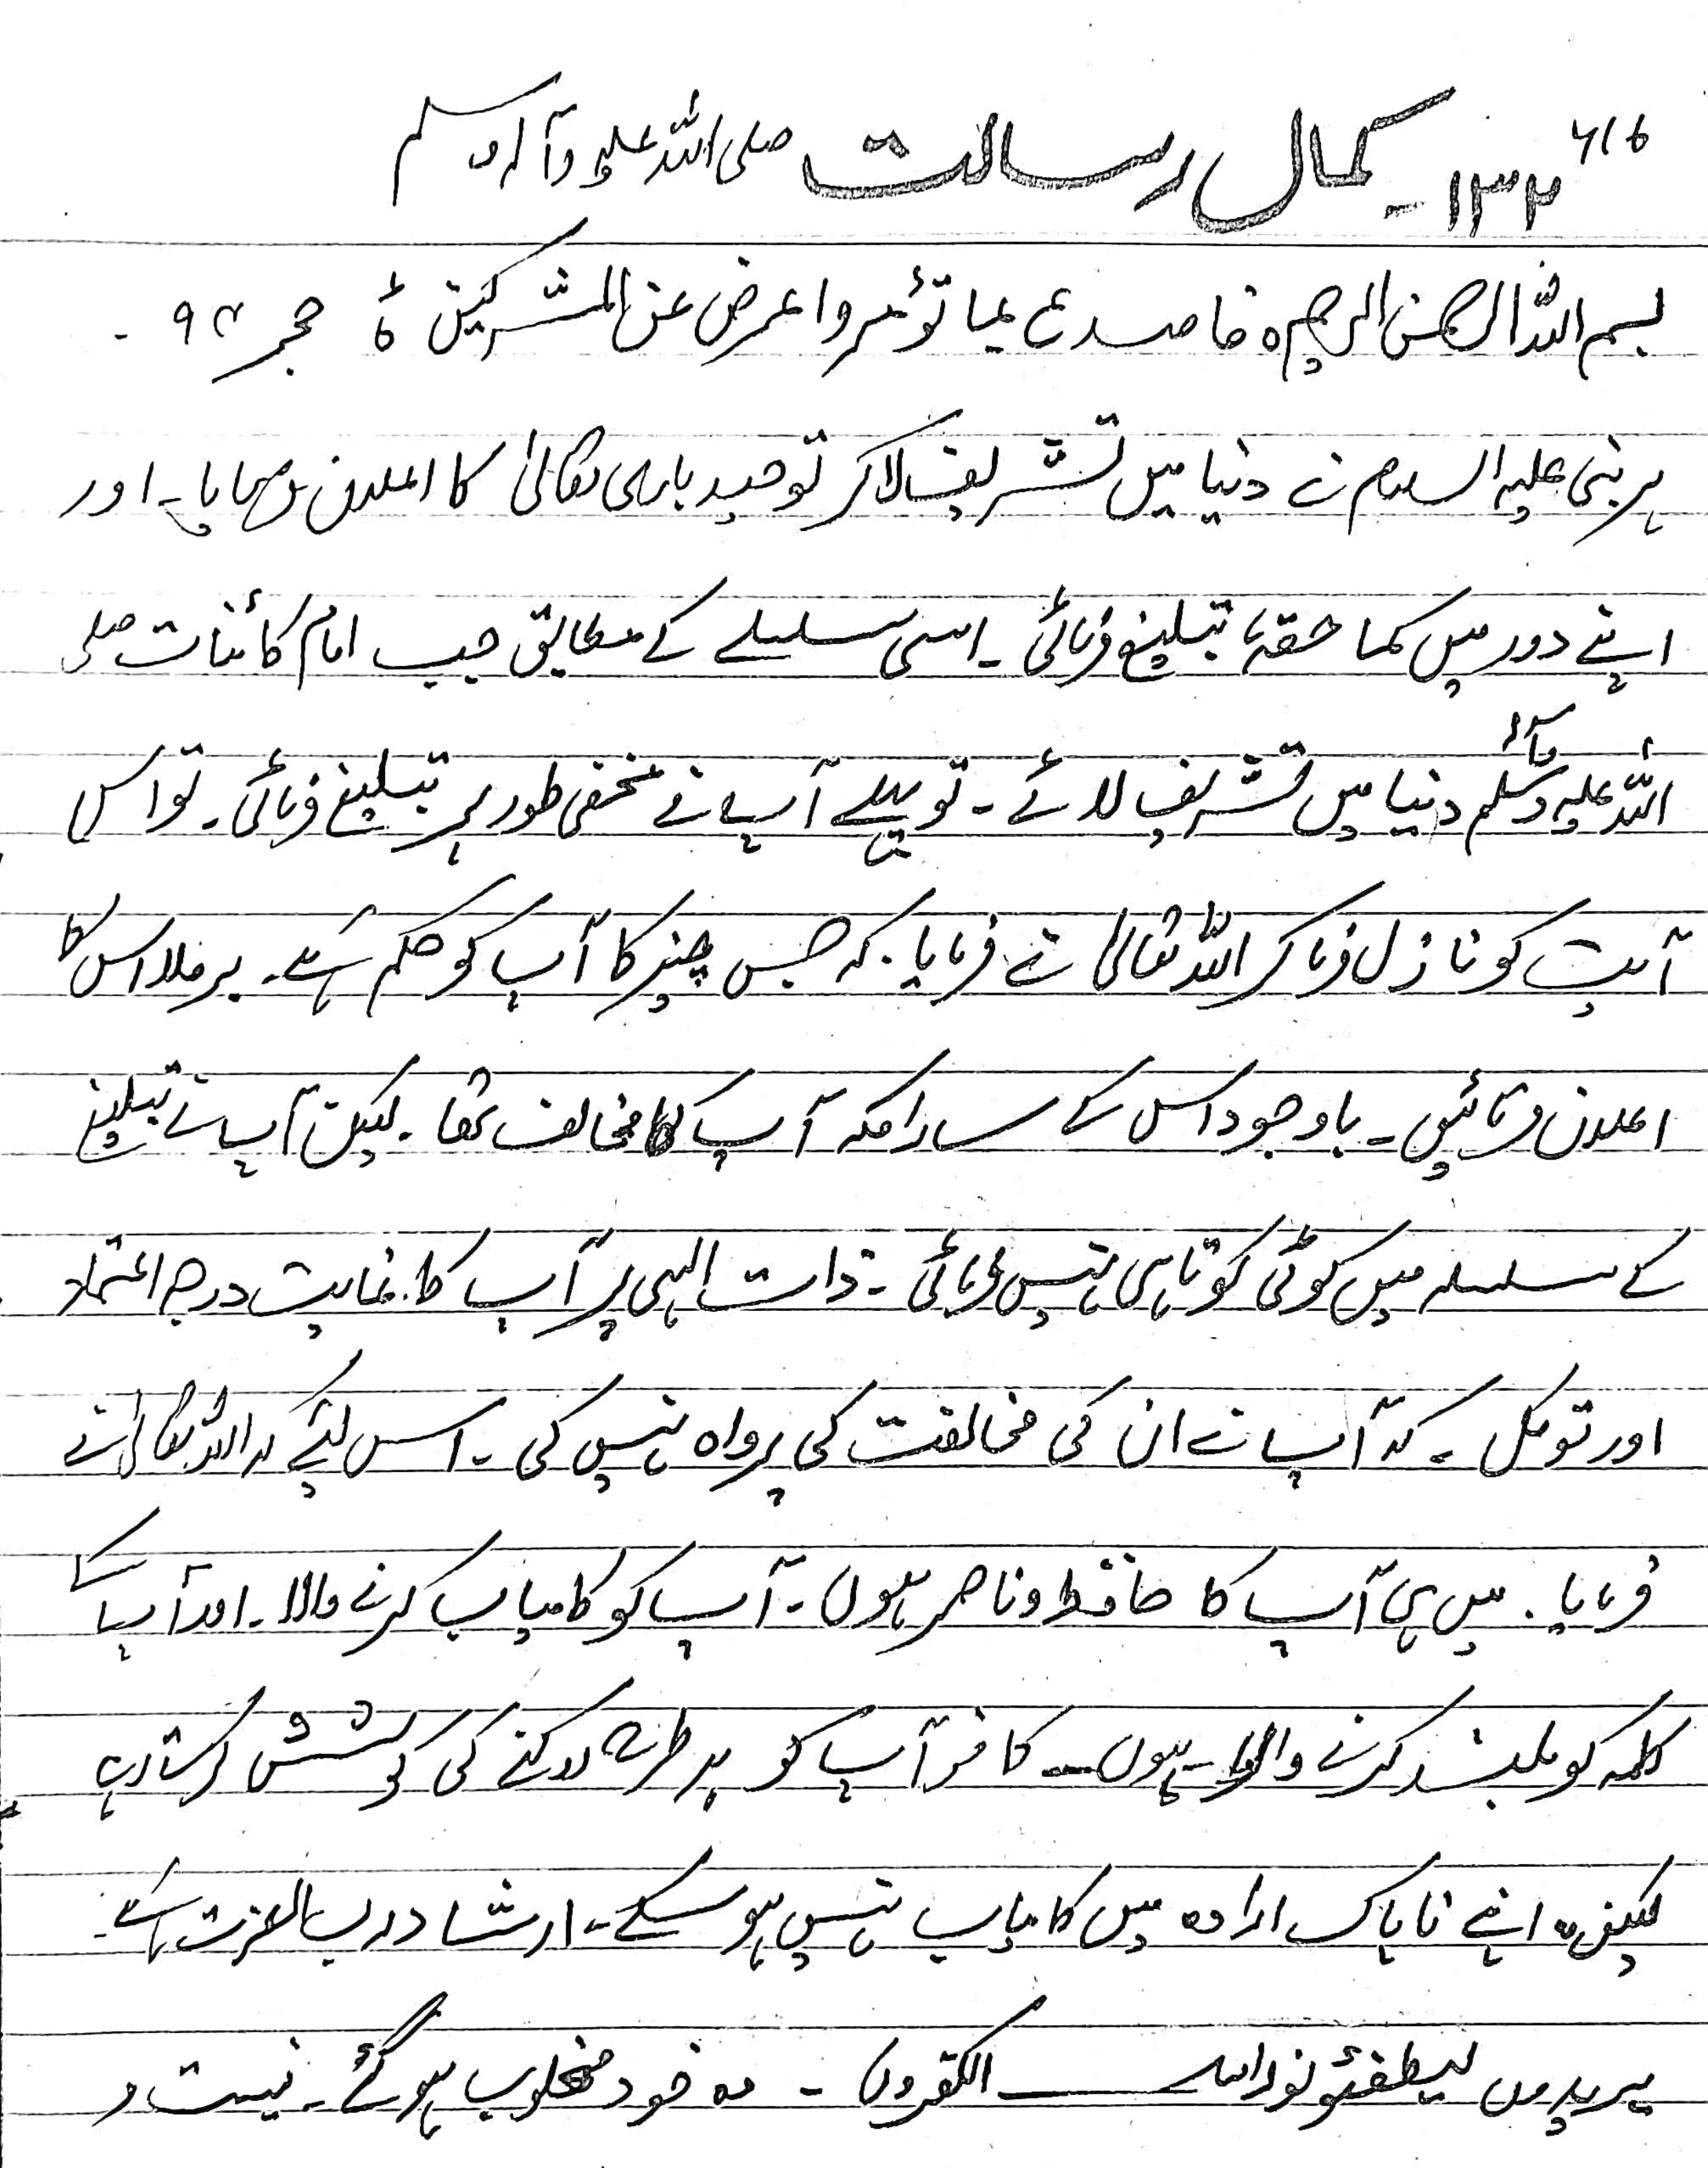 ۶۱۶
۱۳۲۔ کمال رسالت صلی اللہ علیہ وآلہ وسلم
بسم اللہ الرحمن الرحیم ہ فاصدع بما تؤمر واعرض عن المشرکین حجر ۹۴ ۔
ہر نبی علیہ السلام نے دنیا میں تشریف لاکر توحید باری تعالیٰ کا اعلان فرمایا۔ اور
اپنے دور میں کما حقہٗ تبلیغ فرمائی ۔ اسی سلسلے کے مطابق جب امام کائنات صلی
اللہ علیہ وآلہ وسلم دنیا میں تشریف لائے ۔ تو پہلے آپ نے مخفی طور پر تبلیغ فرمائی ۔ تو اس
آیت کو نازل فرماکر اللہ تعالیٰ نے فرمایا ۔ کہ جس چیز کا آپ کو حکم ہے ۔ برملا اس کا
اعلان فرمائیں ۔ باوجود اس کے سارا مکہ آپ کا مخالف تھا ۔ لیکن آپ نے تبلیغ
کے سلسلہ میں کوئی کوتاہی نہیں فرمائی ۔ ذات الہی پر آپ کا نہایت درجہ اعتماد
اور توکل ۔ کہ آپ نے ان کی مخالفت کی پرواہ نہیں کی ۔ اس لئے کہ اللہ تعالیٰ نے
فرمایا ۔ میں ہی آپ کا حافظ و ناصر ہوں ۔ آپ کو کامیاب کرنے والا ۔ اور آپ کے
کلمہ کو بلند کرنے والا ہوں ۔ کافر آپ کو ہر طرح روکنے کی کوشش کرتے رہے
لیکن وہ اپنے ناپاک ارادہ میں کامیاب نہیں ہو سکے ۔ ارشاد رب العزت ہے ۔
یریدون لیطفئو نور اللہ ــــ الکفرون ۔ وہ خود مغلوب ہو گئے ۔ نیست و